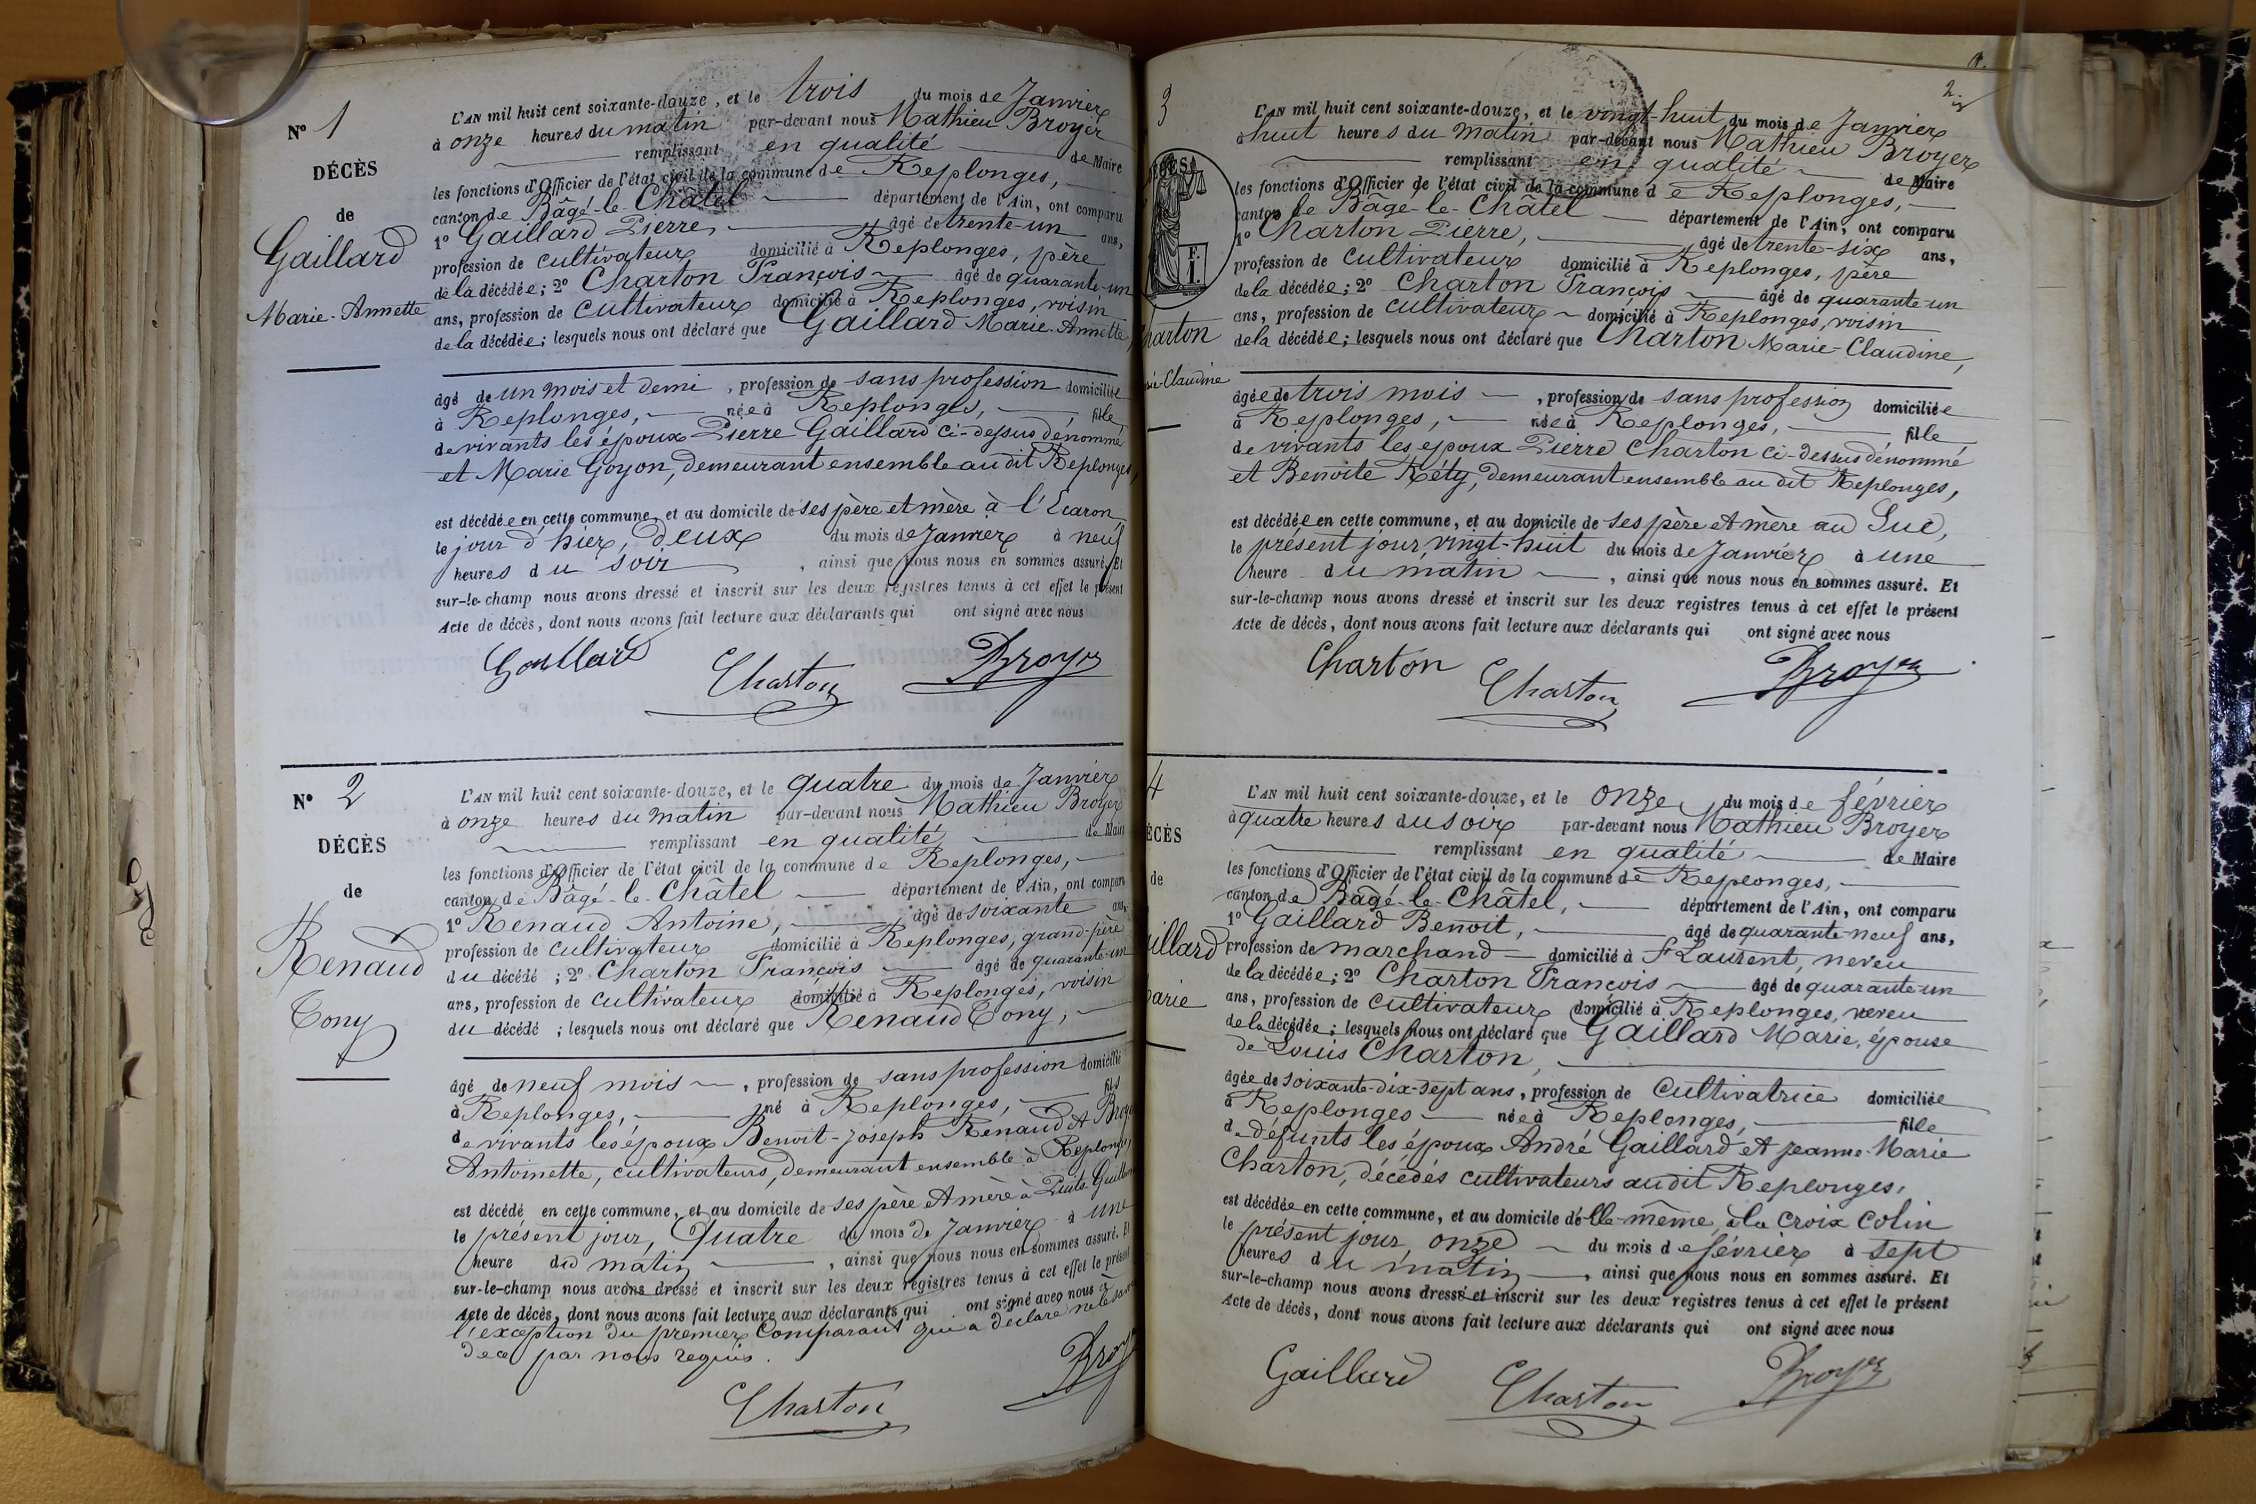 N° 1
DÉCÈS
de
Gaillard
Marie-Annette
L'AN mil huit cent soixante-douze, et le trois du mois de Janvier
à onze heures du matin par-devant nous Mathieu Broyer
remplissant en qualité de Maire
les fonctions d'Officier de l'état civil de la commune de Replonges,
canton de Bâgé-le-Châtel département de l'Ain, ont comparu
1° Gaillard Pierre, âgé de trente-un ans,
profession de cultivateur domicilié à Replonges, père
de la décédée; 2° Charton François âgé de quarante-un
ans, profession de cultivateur domicilié à Replonges, voisin
de la décédée; lesquels nous ont déclaré que Gaillard Marie-Annette
âgé de un mois et demi, profession de sans profession domiciliée
à Replonges, née à Replonges, fille
de vivants les époux Pierre Gaillard ci-dessus dénommé
et Marie Goyon, demeurant ensemble au dit Replonges,
est décédée en cette commune, et au domicile de ses père et mère à l'Ecaron
le jour d'hier, deux du mois de Janvier à neuf
heures du soir, ainsi que nous nous en sommes assuré. Et
sur-le-champ nous avons dressé et inscrit sur les deux registres tenus à cet effet le présent
Acte de décès, dont nous avons fait lecture aux déclarants qui ont signé avec nous
Gaillard Charton Broyer
N° 2
DÉCÈS
de
Renaud
Tony
L'AN mil huit cent soixante-douze, et le quatre du mois de Janvier
à onze heures du matin par-devant nous Mathieu Broyer
remplissant en qualité de Maire
les fonctions d'Officier de l'état civil de la commune de Replonges,
canton de Bâgé-le-Châtel département de l'Ain, ont comparu
1° Renaud Antoine, âgé de soixante ans,
profession de cultivateur domicilié à Replonges, grand-père
du décédé; 2° Charton François âgé de quarante-un
ans, profession de cultivateur domicilié à Replonges, voisin
du décédé; lesquels nous ont déclaré que Renaud Tony,
âgé de neuf mois, profession de sans profession domicilié
à Replonges, né à Replonges, fils
de vivants les époux Benoit-Joseph Renaud et Broyer
Antoinette, cultivateurs, demeurant ensemble à Replonges,
est décédé en cette commune, et au domicile de ses père et mère à Puits
le présent jour, Quatre du mois de Janvier à une
heure du matin, ainsi que nous nous en sommes assuré. Et
sur-le-champ nous avons dressé et inscrit sur les deux registres tenus à cet effet le présent
Acte de décès, dont nous avons fait lecture aux déclarants qui ont signé avec nous à
l'exception du premier Comparant qui a déclaré ne le savoir
de ce par nous requis.
Charton Broyer
2
3
F. I.
Charton
Claudine
L'AN mil huit cent soixante-douze, et le vingt-huit du mois de Janvier
à huit heures du matin par-devant nous Mathieu Broyer
remplissant en qualité de Maire
les fonctions d'Officier de l'état civil de la commune de Replonges,
canton de Bâgé-le-Châtel département de l'Ain, ont comparu
1° Charton Pierre, âgé de trente-six ans,
profession de cultivateur domicilié à Replonges, père
de la décédée; 2° Charton François âgé de quarante-un
ans, profession de cultivateur domicilié à Replonges, voisin
de la décédée; lesquels nous ont déclaré que Charton Marie-Claudine,
âgée de trois mois, profession de sans profession domiciliée
à Replonges, née à Replonges, fille
de vivants les époux Pierre Charton ci-dessus dénommé
et Benoite Réty, demeurant ensemble au dit Replonges,
est décédée en cette commune, et au domicile de ses père et mère au Suc,
le présent jour, vingt-huit du mois de Janvier à une
heure du matin, ainsi que nous nous en sommes assuré. Et
sur-le-champ nous avons dressé et inscrit sur les deux registres tenus à cet effet le présent
Acte de décès, dont nous avons fait lecture aux déclarants qui ont signé avec nous
Charton Charton Broyer
4
DÉCÈS
de
Gaillard
Marie
L'AN mil huit cent soixante-douze, et le onze du mois de février
à quatre heures du soir par-devant nous Mathieu Broyer
remplissant en qualité de Maire
les fonctions d'Officier de l'état civil de la commune de Replonges,
canton de Bâgé-le-Châtel, département de l'Ain, ont comparu
1° Gaillard Benoit, âgé de quarante-neuf ans,
profession de marchand domicilié à St Laurent, neveu
de la décédée; 2° Charton François âgé de quarante-un
ans, profession de cultivateur domicilié à Replonges, neveu
de la décédée; lesquels nous ont déclaré que Gaillard Marie, épouse
de Louis Charton,
âgée de soixante-dix-sept ans, profession de cultivatrice domiciliée
à Replonges née à Replonges, fille
de défunts les époux André Gaillard et Jeanne-Marie
Charton, décédés cultivateurs au dit Replonges,
est décédée en cette commune, et au domicile d'elle-même, à la croix colin
le présent jour, onze du mois de février à sept
heures du matin, ainsi que nous nous en sommes assuré. Et
sur-le-champ nous avons dressé et inscrit sur les deux registres tenus à cet effet le présent
Acte de décès, dont nous avons fait lecture aux déclarants qui ont signé avec nous
Gaillard Charton Broyer